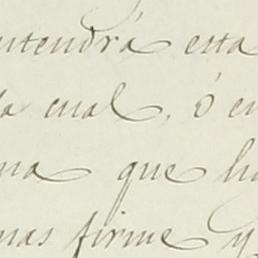 ntendrá esta
la cual, ó en
na que ha
mas firme y